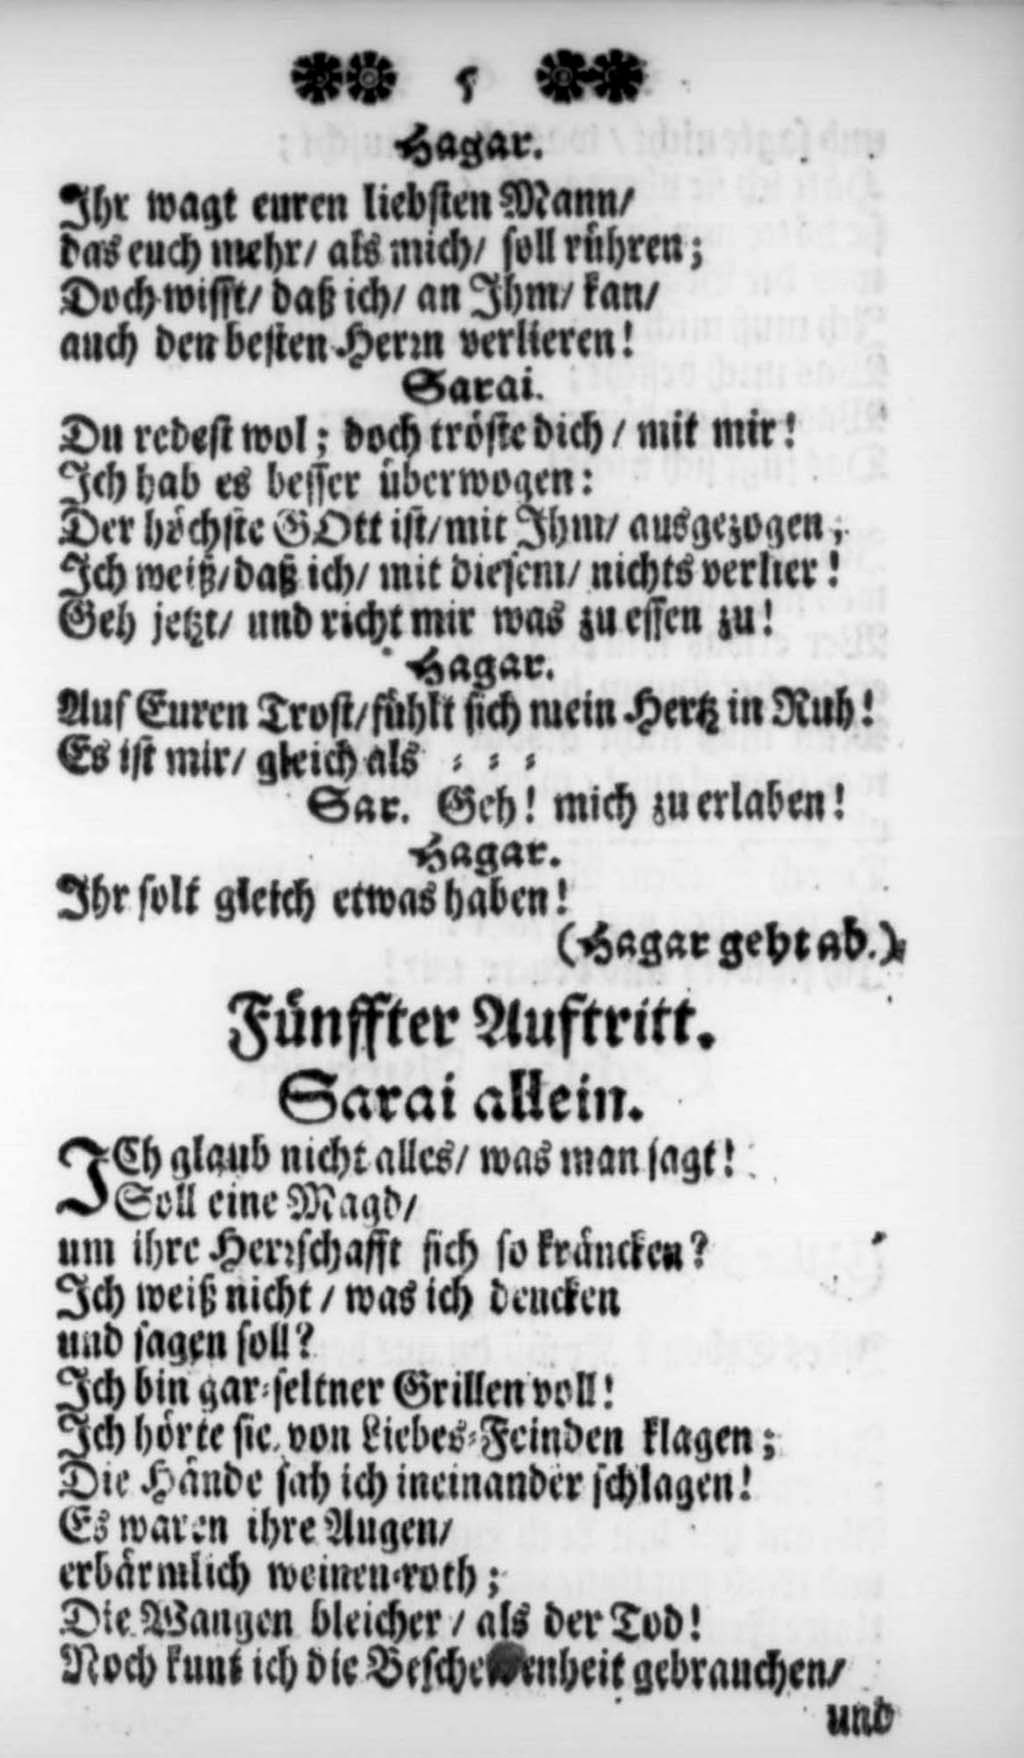 5
Hagar.
Ihr wagt euren liebsten Mann/
das euch mehr/ als mich/ soll rühren;
Doch wisst/ daß ich/ an Ihm/ kan/
auch den besten Herrn verlieren!
Sarai.
Du redest wol; doch tröste dich / mit mir!
Ich hab es besser überwogen:
Der höchste GOtt ist/ mit Ihm/ ausgezogen;
Ich weiß/ daß ich/ mit diesem/ nichts verlier!
Geh jetzt/ und richt mir was zu essen zu!
Hagar.
Auf Euren Trost/ fühlt sich mein Hertz in Ruh!
Es ist mir/ gleich als = = =
Sar. Geh! mich zu erlaben!
Hagar.
Ihr solt gleich etwas haben!
(Hagar geht ab.)
Fünffter Auftritt.
Sarai allein.
ICh glaub nicht alles/ was man sagt!
Soll eine Magd/
um ihre Herrschafft sich so kräncken?
Ich weiß nicht / was ich dencken
und sagen soll?
Ich bin gar=seltner Grillen voll!
Ich hörte sie von Liebes=Feinden klagen;
Die Hände sah ich ineinander schlagen!
Es waren ihre Augen/
erbärmlich weinen=roth;
Die Wangen bleicher / als der Tod!
Noch kunt ich die Bescheidenheit gebrauchen/
und